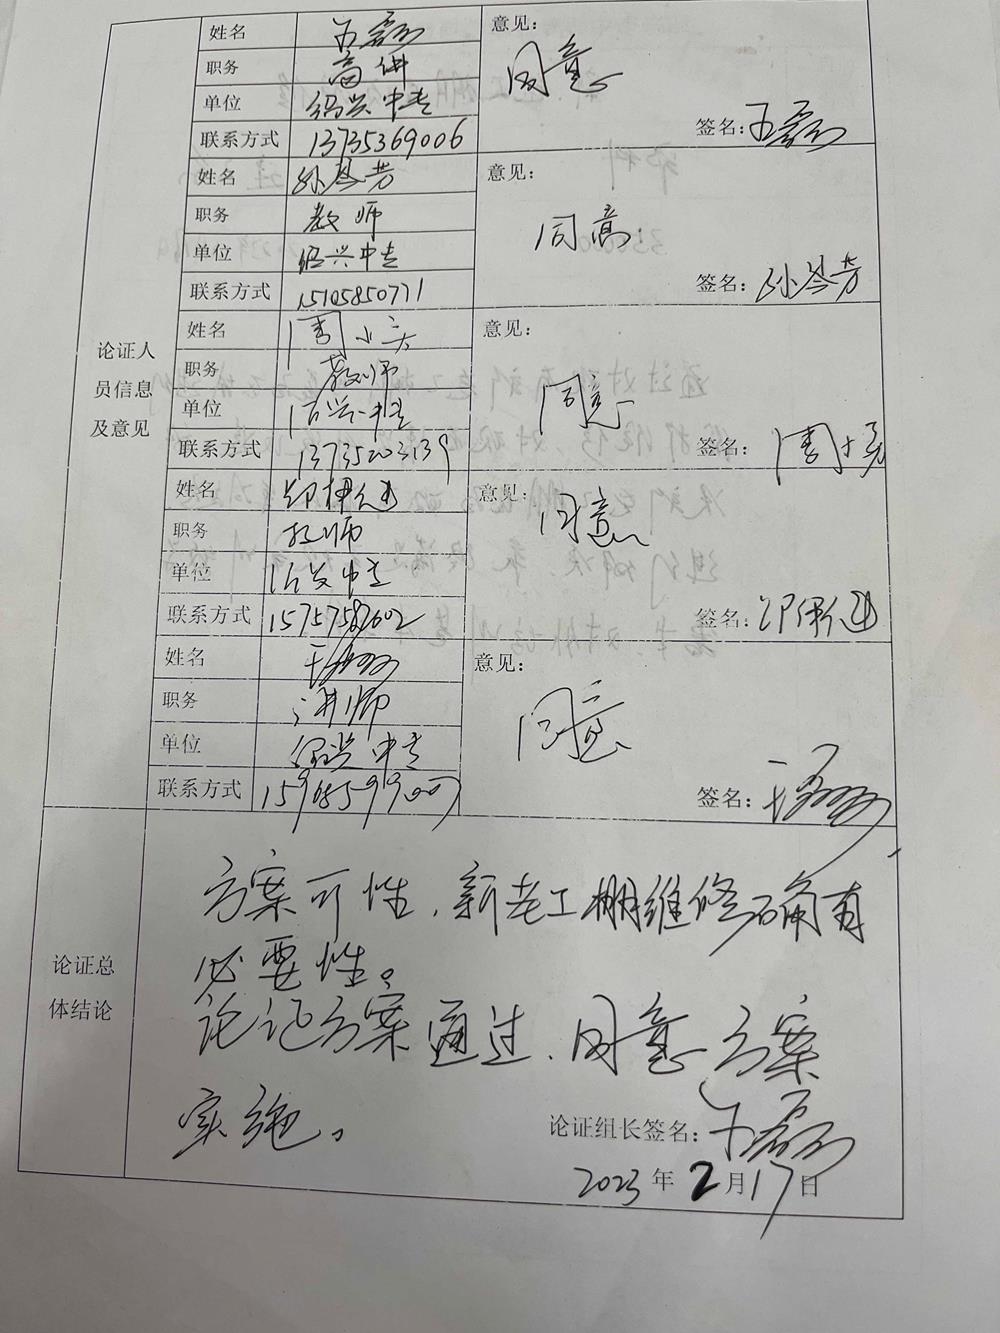 姓名 王磊
意见：
职务 高讲
同意
单位 绍兴中专
签名：王磊
联系方式 13735369006
姓名 孙琴芳
意见：
职务 教师
同意
单位 绍兴中专
签名：孙琴芳
联系方式 15105850771
论证人
员信息
及意见
姓名 周小
意见：
职务 教师
同意
单位 绍兴中专
签名：周小
联系方式 13735203139
姓名
意见：
同意
职务 教师
单位 绍兴中专
签名：
联系方式 15757582602
姓名
意见：
职务 讲师
同意
单位 绍兴中专
签名：
联系方式 15905899007
论证总
体结论
方案可性，新老工棚维修确有
必要性。
论证方案通过，同意方案
实施。
论证组长签名：王磊
2023年2月17日